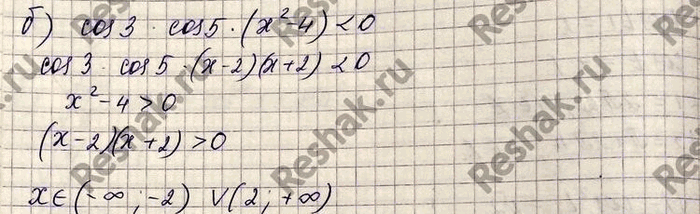 б) cos 3 · cos 5 · (x² - 4) < 0
cos 3 · cos 5 · (x - 2)(x + 2) < 0
x² - 4 > 0
(x - 2)(x + 2) > 0
x ∈ (-∞; -2) ∨ (2; +∞)
Reshak.ru
Reshak.ru
Reshak.ru
Reshak.ru